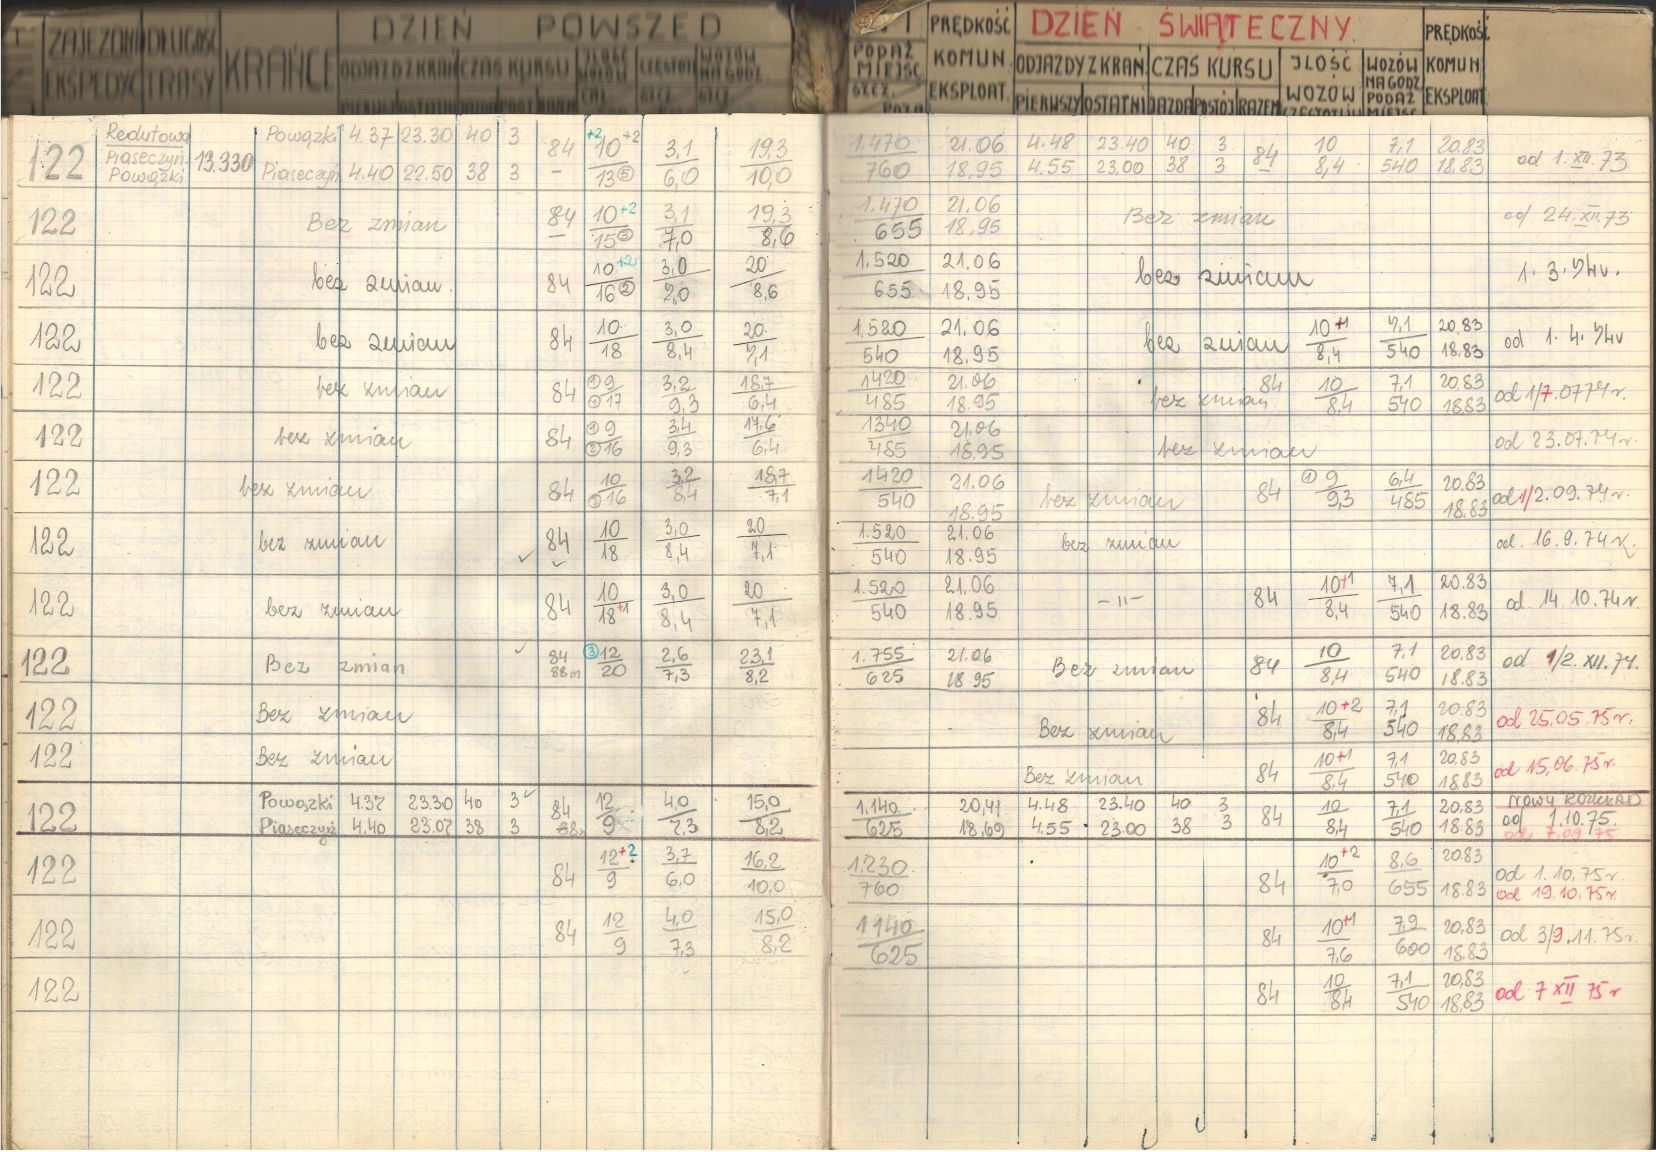 ZAJEZDNIA DŁUGOŚĆ KRAŃCE DZIEŃ POWSZED
EKSPEDYC TRASY ODJAZD Z KRAŃ CZAS KURSU
PRĘDKOŚĆ KOMUN. EKSPLOAT. DZIEŃ ŚWIĄTECZNY. PRĘDKOŚĆ KOMUN. EKSPLOAT
PODAŻ MIEJSC ODJAZDY Z KRAŃ CZAS KURSU JLOŚĆ WOZÓW WOZÓW NA GODZ. PODAŻ MIEJSC
PIERWSZY OSTATNI JAZDA POSTÓJ RAZEM
122 Redutowa Piaseczyń. Powązki 13.930 Powązki 4.37 23.30 40 3 84 +2 10 +2 3,1 19,3 1.470 21.06 4.48 23.40 40 3 84 10 7,1 20.83 od 1. XII. 73
Piaseczyń 4.40 22.50 38 3 – 13 ⑤ 6,0 10,0 760 18,95 4.55 23.00 38 3 8,4 540 18,83
122 Bez zmian 84 10 +2 3,1 19,3 1.470 21.06 Bez zmian od 24. XII. 73
15 ③ 7,0 8,6 655 18,95
122 bez zmian. 84 10 +2 3,0 20 1.520 21.06 bez zmian 1. 3. 74r.
16 ② 2,0 8,6 655 18.95
122 bez zmian 84 10 3,0 20 1.520 21.06 bez zmian 10 +1 7,1 20.83 od 1. 4. 74r
18 8,4 7,1 540 18.95 8,4 540 18.83
122 bez zmian 84 ① 9 3,2 18,7 1420 21.06 bez zmian 84 10 7,1 20.83 od 1/7.0774r.
① 17 9,3 6,4 485 18.95 8,4 540 18.83
122 bez zmian 84 ① 9 3,4 17,6 1340 21.06 bez zmian od 23.07.74r.
② 16 9,3 6,4 485 18.95
122 bez zmian 84 10 3,2 18,7 1420 21.06 bez zmian 84 ① 9 6,4 20.83 od 1/2.09.74r.
② 16 8,4 7,1 540 18.95 9,3 485 18.83
122 bez zmian 84 10 3,0 20 1.520 21.06 bez zmian od. 16.9.74r.
18 8,4 7,1 540 18.95
122 bez zmian 84 10 3,0 20 1.520 21.06 –"– 84 10 +1 7,1 20.83 od. 14 10.74r.
18 +1 8,4 7,1 540 18.95 8,4 540 18.83
122 Bez zmian 84 ③ 12 2,6 23,1 1.755 21.06 Bez zmian 84 10 7,1 20,83 od 1/2. XII. 74.
88m 20 7,3 8,2 625 18 95 8,4 540 18.83
122 Bez zmian Bez zmian 84 10+2 7,1 20.83 od 25.05.75r.
8,4 540 18,83
122 Bez zmian Bez zmian 84 10+1 7,1 20,83 od 15,06.75r.
8,4 540 18.83
122 Powązki 4.37 23.30 40 3 84 12 4,0 15,0 1.140 20,41 4.48 23.40 40 3 84 10 7,1 20.83 NOWY ROZKŁAD od 1.10.75.
Piaseczyń 4.40 23.07 38 3 9 7,3 8,2 625 18,69 4.55 23.00 38 3 8,4 540 18.83 od 7.09 75
122 84 12 +2 3,7 16,2 1.230 84 10 +2 8,6 20.83 od 1.10.75r.
9 6,0 10,0 760 7,0 655 18.83 od 19.10.75r
122 84 12 4,0 15,0 1140 84 10 +1 7,9 20,83 od 3/9.11.75r.
9 7,3 8,2 625 7,6 600 18.83
122 84 10 7,1 20,83 od 7 XII 75r
8,4 540 18,83